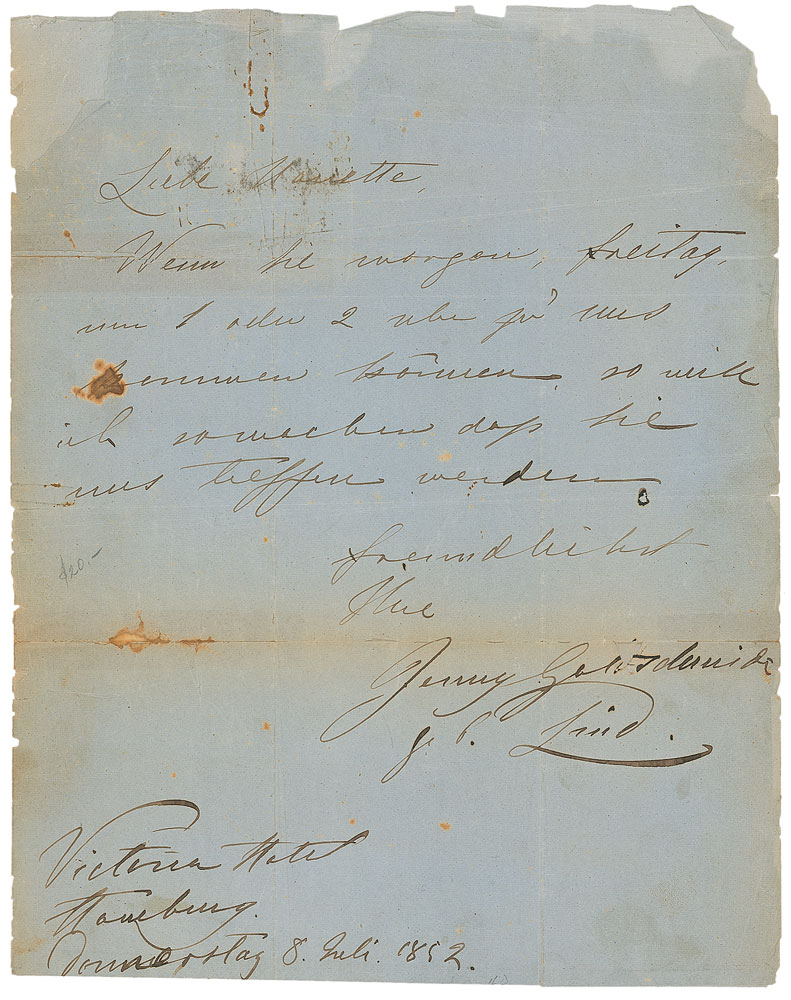 Liebe Nanette,
Wenn Sie morgen, freitag,
um 1 oder 2 uhr zu uns
kommen können, so will
ich so machen daß Sie
uns treffen werden
freundlichst
Ihre
Jenny Goldschmidt
geb. Lind.
$20.-
Victoria Hotel
Hamburg.
Donnerstag 8. Juli. 1852.